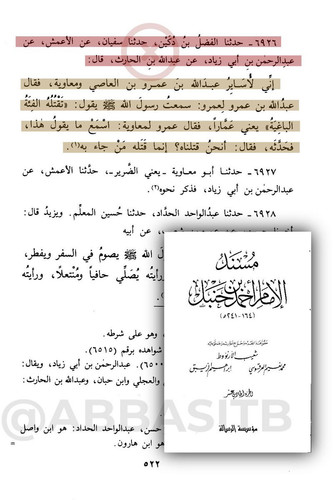 ٦٩٢٦- حدثنا الفضلُ بنُ دُكَيْن، حدثنا سفيان، عن الأعمش، عن
عبدِالرحمٰن بنِ أبي زياد، عن عبدالله بن الحارث، قال:
إنِّي لَأُسَايِرُ عبدَالله بن عمرو بن العاصي ومعاوية، فقال
عبدُالله بن عمرو لعمرو: سمعتُ رسول الله ﷺ يقول: «تَقْتُلُهُ الفِئَةُ
الباغِيَةُ» يعني عَمَّاراً، فقال عمرو لمعاوية: اسْمَعْ ما يقولُ هٰذا،
فحَدَّثَه، فقال: أنحنُ قتلناه؟ إنما قَتَله مَنْ جاء به(١).
٦٩٢٧- حدثنا أبو معاوية - يعني الضَّرير-، حدَّثنا الأعمش، عن
عبدالرحمٰن بن أبي زياد، فذكر نحوه(٢).
٦٩٢٨- حدثنا عبدُالواحد الحدَّاد، حدثنا حُسين المعلِّم. ويزيدُ قال:
عن أبيه
الله ﷺ يصومُ في السفر ويفطر،
يُصَلِّي حافياً ومُنْتَعلًا، ورأيتُه
وهو على شرطه.
شواهده برقم (٦٥١٥)
عبدالرحمٰن بن أبي زياد، ويقال:
والعجلي وابن حبان، وعبدالله بن الحارث:
حسن، عبدالواحد الحداد: هو ابن واصل
هو ابن هارون.
٥٢٢
مُسْنَد
الإمام أحمد بن حنبل
(١٦٤-٢٤١هـ)
شعيب الأرنؤوط
مؤسسة الرسالة
@ABBASITB